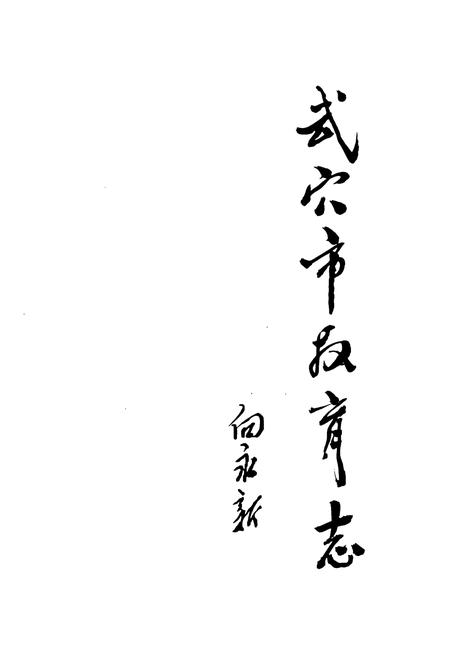 武穴市教育志
向永新